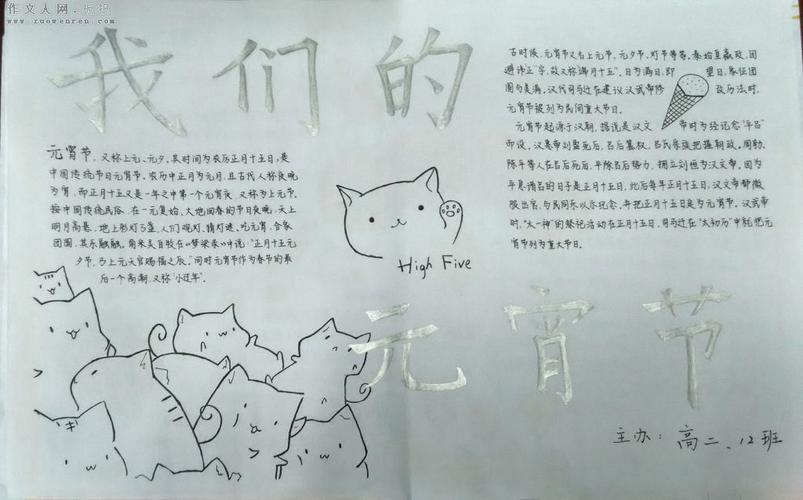 作文人网
www.zuowenren.com
我们的
元宵节,又称上元、元夕,其时间为农历正月十五日,是
中国传统节日元宵节。农历中正月为元月,且古代人称夜晚
为宵,而正月十五又是一年之中第一个元宵夜 又称为上元节。
按中国传统民俗,在一元复始、大地回春的节日夜晚,天上
明月高悬,地上彩灯万盏,人们观灯、猜灯谜、吃元宵、合家
团圆、其乐融融。南宋吴自牧在《梦梁录》中说:"正月十五元
夕节,乃上元天官赐福之辰。"同时元宵节作为春节的最
后一个高潮,又称"小过年"。
High Five
古时候,元宵节又名上元节、元夕节、灯节等等。秦始皇嬴政,因
避讳"正"字,故又称"端月十五"。日为满日,即望日,象征团
团圆美满。汉代司马迁在建议汉武帝修改历法时,
元宵节被列为民间重大节日。
元宵节起源于汉朝,据说是汉文帝时为纪念"平吕"
而设。汉惠帝刘盈死后,吕后篡权,吕氏宗族把握朝政。周勃、
陈平等人在吕后死后,平除吕后势力,拥立刘恒为汉文帝。因为
平息诸吕的日子是正月十五日,此后每年正月十五日,汉文帝都微
服出宫,与民同乐以示纪念。并把正月十五日定为元宵节。汉武帝
时,"太一神"的祭祀活动在正月十五日,司马迁在"太初历"中就把元
宵节列为重大节日。
元宵节
主办:高二、12班